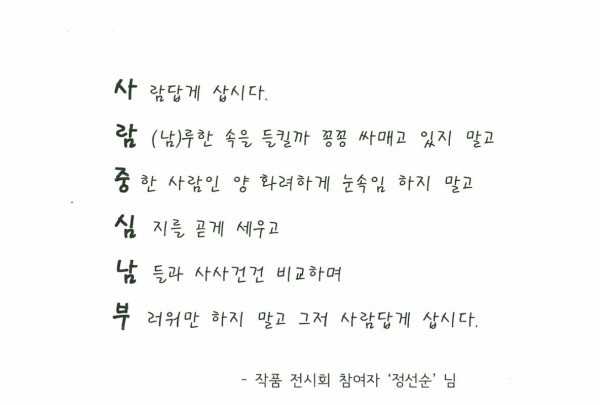 사 람답게 삽시다.
람 (남)루한 속을 들킬까 꽁꽁 싸매고 있지 말고
중 한 사람인 양 화려하게 눈속임 하지 말고
심 지를 곧게 세우고
남 들과 사사건건 비교하며
부 러워만 하지 말고 그저 사람답게 삽시다.
- 작품 전시회 참여자 ‘정선순’ 님